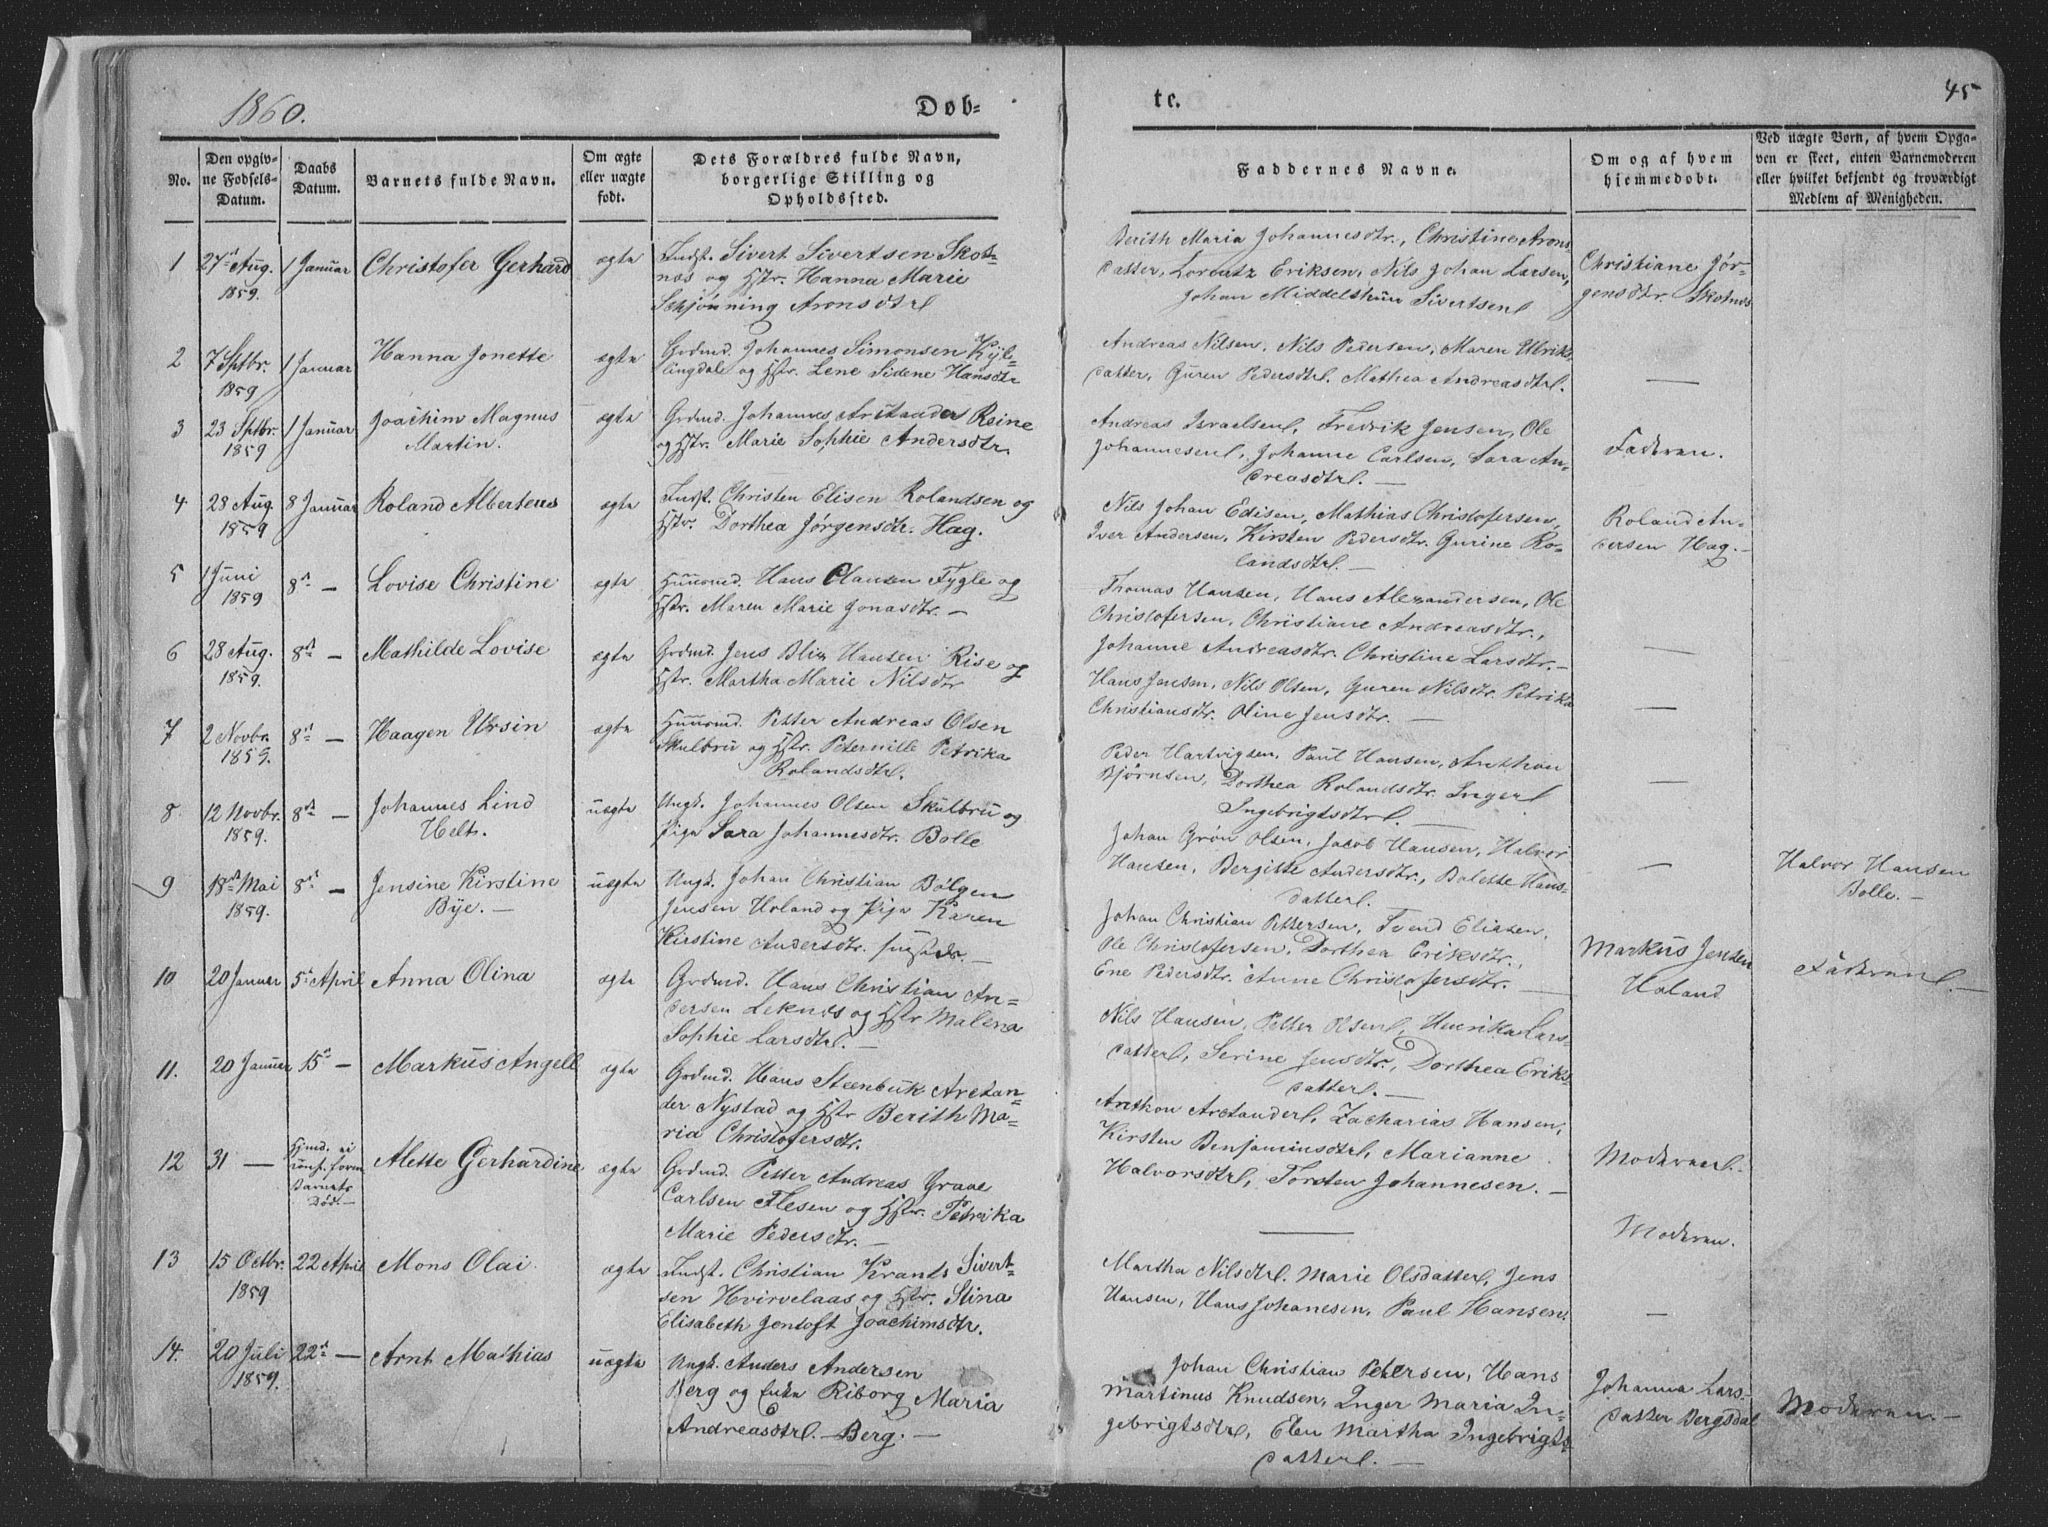 1860.
Døb-
te.
45
No.
Den opgiv-
ne Fødsels-
Datum.
Daabs
Datum.
Barnets fulde Navn.
Om ægte
eller uægte
født.
Dets Forældres fulde Navn,
borgerlige Stilling og
Opholdssted.
Faddernes Navne.
Om og af hvem
hjemmedøbt.
Ved uægte Børn, af hvem Opga-
ven er skeet, enten Barnemoderen
eller hvilket bekjendt og troværdigt
Medlem af Menigheden.
1
27de Aug.
1859.
1 Januar
Christofer Gerhard
ægte
Indst. Sivert Sivertsen Skot-
næs og Hstr. Hanna Marie
Schjønning Aronsdtr
Berith Maria Johannesdtr., Christine Arons-
datter, Lorentz Eriksen, Nils Johan Larsen,
Johan Middelthun Sivertsen
Christiane Jør-
gensdtr. Skotnæs
2
7 Sptbr.
1859
1 Januar
Hanna Jonette
ægte
Grdmd. Johannes Simonsen Kyl-
lingdale og Hstr. Lene Sidene Hansdtr
Andreas Nilsen, Nils Pedersen, Maren Ulriks-
datter, Guren Pedersdtr. Mathea Andreasdtr.
—
3
23 Sptbr.
1859
1 Januar
Joachim Magnus
Martin.
ægte
Grdmd. Johannes Arctander Reine
og Hstr. Marie Sophie Andersdtr
Andreas Israelsen, Fredrik Jensen, Ole
Johannesen, Johanne Carlsen, Sara An-
dreasdtr. —
Faderen.
4
28 Aug.
1859
8 Januar
Roland Alberteus
ægte
Indst. Christen Elisen Rolandsen og
Hstr. Dorthea Jørgensdtr. Hag.
Nils Johan Edisen, Mathias Christofersen,
Iver Andersen, Kirsten Pedersdtr. Gurine Ro-
landsdtr. —
Roland An-
dersen Hag. —
5
1 Juni
1859
8de —
Lovise Christine
ægte
Huusmd. Hans Olausen Fygle og
Hstr. Maren Marie Jonasdtr. —
Thomas Hansen, Hans Alexandersen, Ole
Christofersen, Christiane Andreasdtr.,
Johanne Andreasdtr. Christine Larsdtr. —
—
6
28 Aug.
1859.
8de —
Mathilde Lovise
ægte
Grdmd. Jens Blix Hansen Rise og
Hstr. Martha Marie Nilsdtr
Hans Jensen, Nils Olsen, Guren Nilsdtr. Petrikke
Christiansdtr. Oline Jensdtr. —
—
7
2 Novbr.
1859.
8de —
Haagen Ursin
ægte
Huusmd. Petter Andreas Olsen
Skulbru og Hstr. Peternille Petrika
Rolandsdtr.
Peder Hartvigsen, Paul Hansen, Anthon
Bjørnsen, Dorthea Rolandsdtr. Inger
Ingebrigtsdtr. —
—
8
12 Novbr.
1859.
8de —
Johannes Lind
Helts.
uægte
Ungk. Johannes Olsen Skulbru og
Pige Sara Johannesdtr. Bolle
Johan Grøn Olsen, Jacob Hansen, Halvor
Hansen, Bergitte Andersdtr., Bolette Hans-
datter. —
—
Halvor Hansen
Bolle. —
9
18de Mai
1859.
8de —
Jensine Kirstine
Bye. —
uægte
Ungk. Johan Christian Bølgen
Jensen Holand og Pige Karen
Kirstine Andersdtr. —
Johan Christian Pettersen, Svend Eliasen,
Ole Christofersen, Dorthea Eriksdtr.,
Ene Pedersdtr. Anne Christofersdtr. —
Markus Jensen
Holand
Faderen —
10
20 Januar
5te April
Anna Olina
ægte
Grdmd. Hans Christian An-
dersen Leknæs og Hstr Malena
Sophie Larsdtr. —
Nils Hansen, Petter Olsen, Henrika Lars-
datter, Serine Jensdtr., Dorthea Eriks-
datter. —
11.
20 Januar
15de —
Markus Angell
ægte
Grdmd. Hans Steenbuk Arctan-
der Nystad og Hstr Berith Ma-
ria Christofersdtr.
Anthon Arctander, Zacharias Hansen,
Kirsten Benjaminsdtr, Marianne
Halvorsdtr, Torsten Johannesen. —
Moderen.
12
31 —
Hjmd. ei
conf. form
Barnets
Død. —
Alette Gerhardine
ægte
Grdmd. Petter Andreas Grave
Carlsen Flesen og Hstr. Petrika
Marie Pedersdtr. —
—
Moderen.
13
15 Octbr.
1859
22 April
Mons Olai
ægte
Indst. Christian Krants Sivert-
sen Hvirvelaas og Hstr. Stina
Elisabeth Jentoft Joachimsdtr.
Martha Nilsdtr. Marie Olsdatter, Jens
Hansen, Hans Johanesen, Paul Hansen.
—
14.
20 Juli
1859.
22de —
Arnt Mathias
uægte
Ungk. Anders Andersen
Berg og Enke Riborg Maria
Andreasdtr. — Berg. —
Johan Christian Petersen, Hans
Martinus Knudsen, Inger Maria In-
gebrigtsdtr, Elen Martha Ingebrigts-
datter. —
Johanna Lars-
datter Bergsdal
Moderen. —